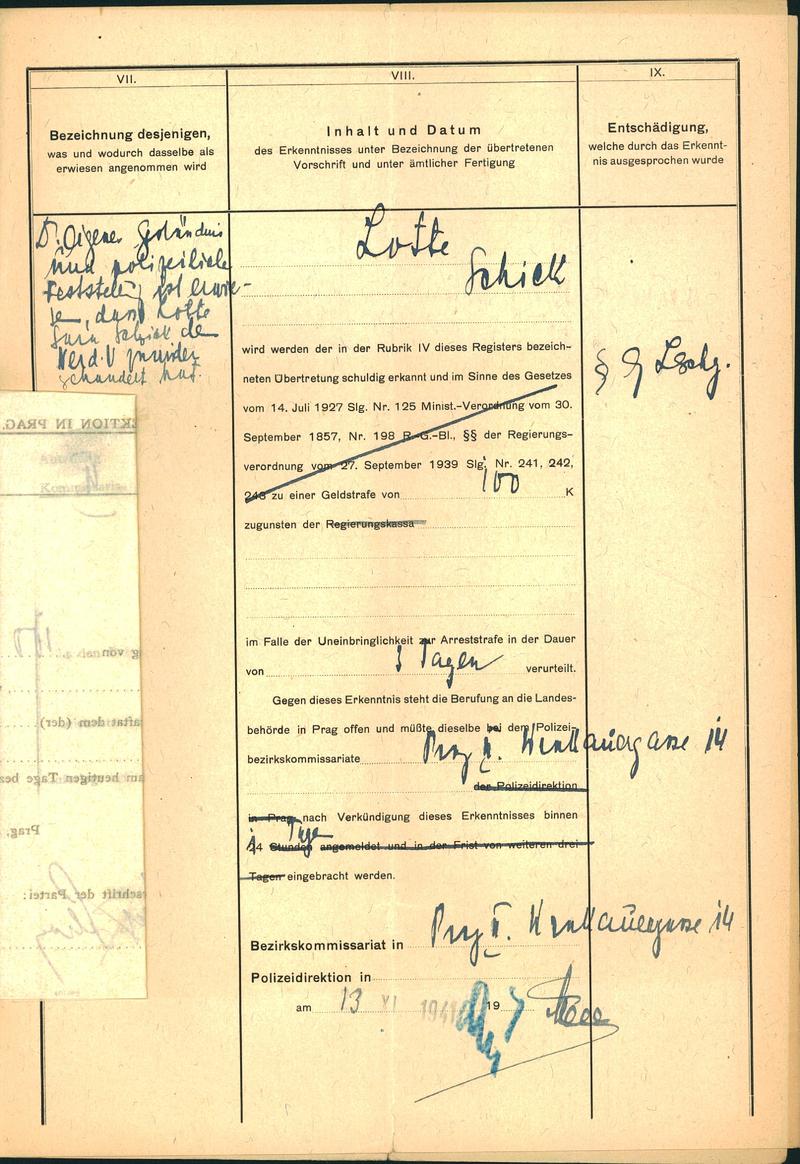 VII.
VIII.
IX.
Bezeichnung desjenigen,
was und wodurch dasselbe als
erwiesen angenommen wird
Inhalt und Datum
des Erkenntnisses unter Bezeichnung der übertretenen
Vorschrift und unter ämtlicher Fertigung
Entschädigung,
welche durch das Erkennt-
nis ausgesprochen wurde
eigenes Geständnis
und polizeiliche
Feststellung ist erwie-
dass Lotte
Sara Schick
Lotte
Schick
wird werden der in der Rubrik IV dieses Registers bezeich-
neten Übertretung schuldig erkannt und im Sinne des Gesetzes
vom 14. Juli 1927 Slg. Nr. 125 Minist.-Verordnung vom 30.
September 1857, Nr. 198 R.-G.-Bl., §§ der Regierungs-
verordnung vom 27. September 1939 Slg. Nr. 241, 242,
243 zu einer Geldstrafe von 100 K
zugunsten der Regierungskassa
im Falle der Uneinbringlichkeit zur Arreststrafe in der Dauer
von 3 Tagen verurteilt.
Gegen dieses Erkenntnis steht die Berufung an die Landes-
behörde in Prag offen und müßte dieselbe bei dem Polizei-
bezirkskommissariate Prag II.
14
der Polizeidirektion
in Prag nach Verkündigung dieses Erkenntnisses binnen
Tage
Stunden angemeldet und in der Frist von weiteren drei
Tagen eingebracht werden.
Bezirkskommissariat in Prag II. 14
Polizeidirektion in
am 13 XI 1941 19
§
EKTION IN PRAG.
g von
aftat dem (der)
am heutigen Tage
Prag,
schrift der Partei: